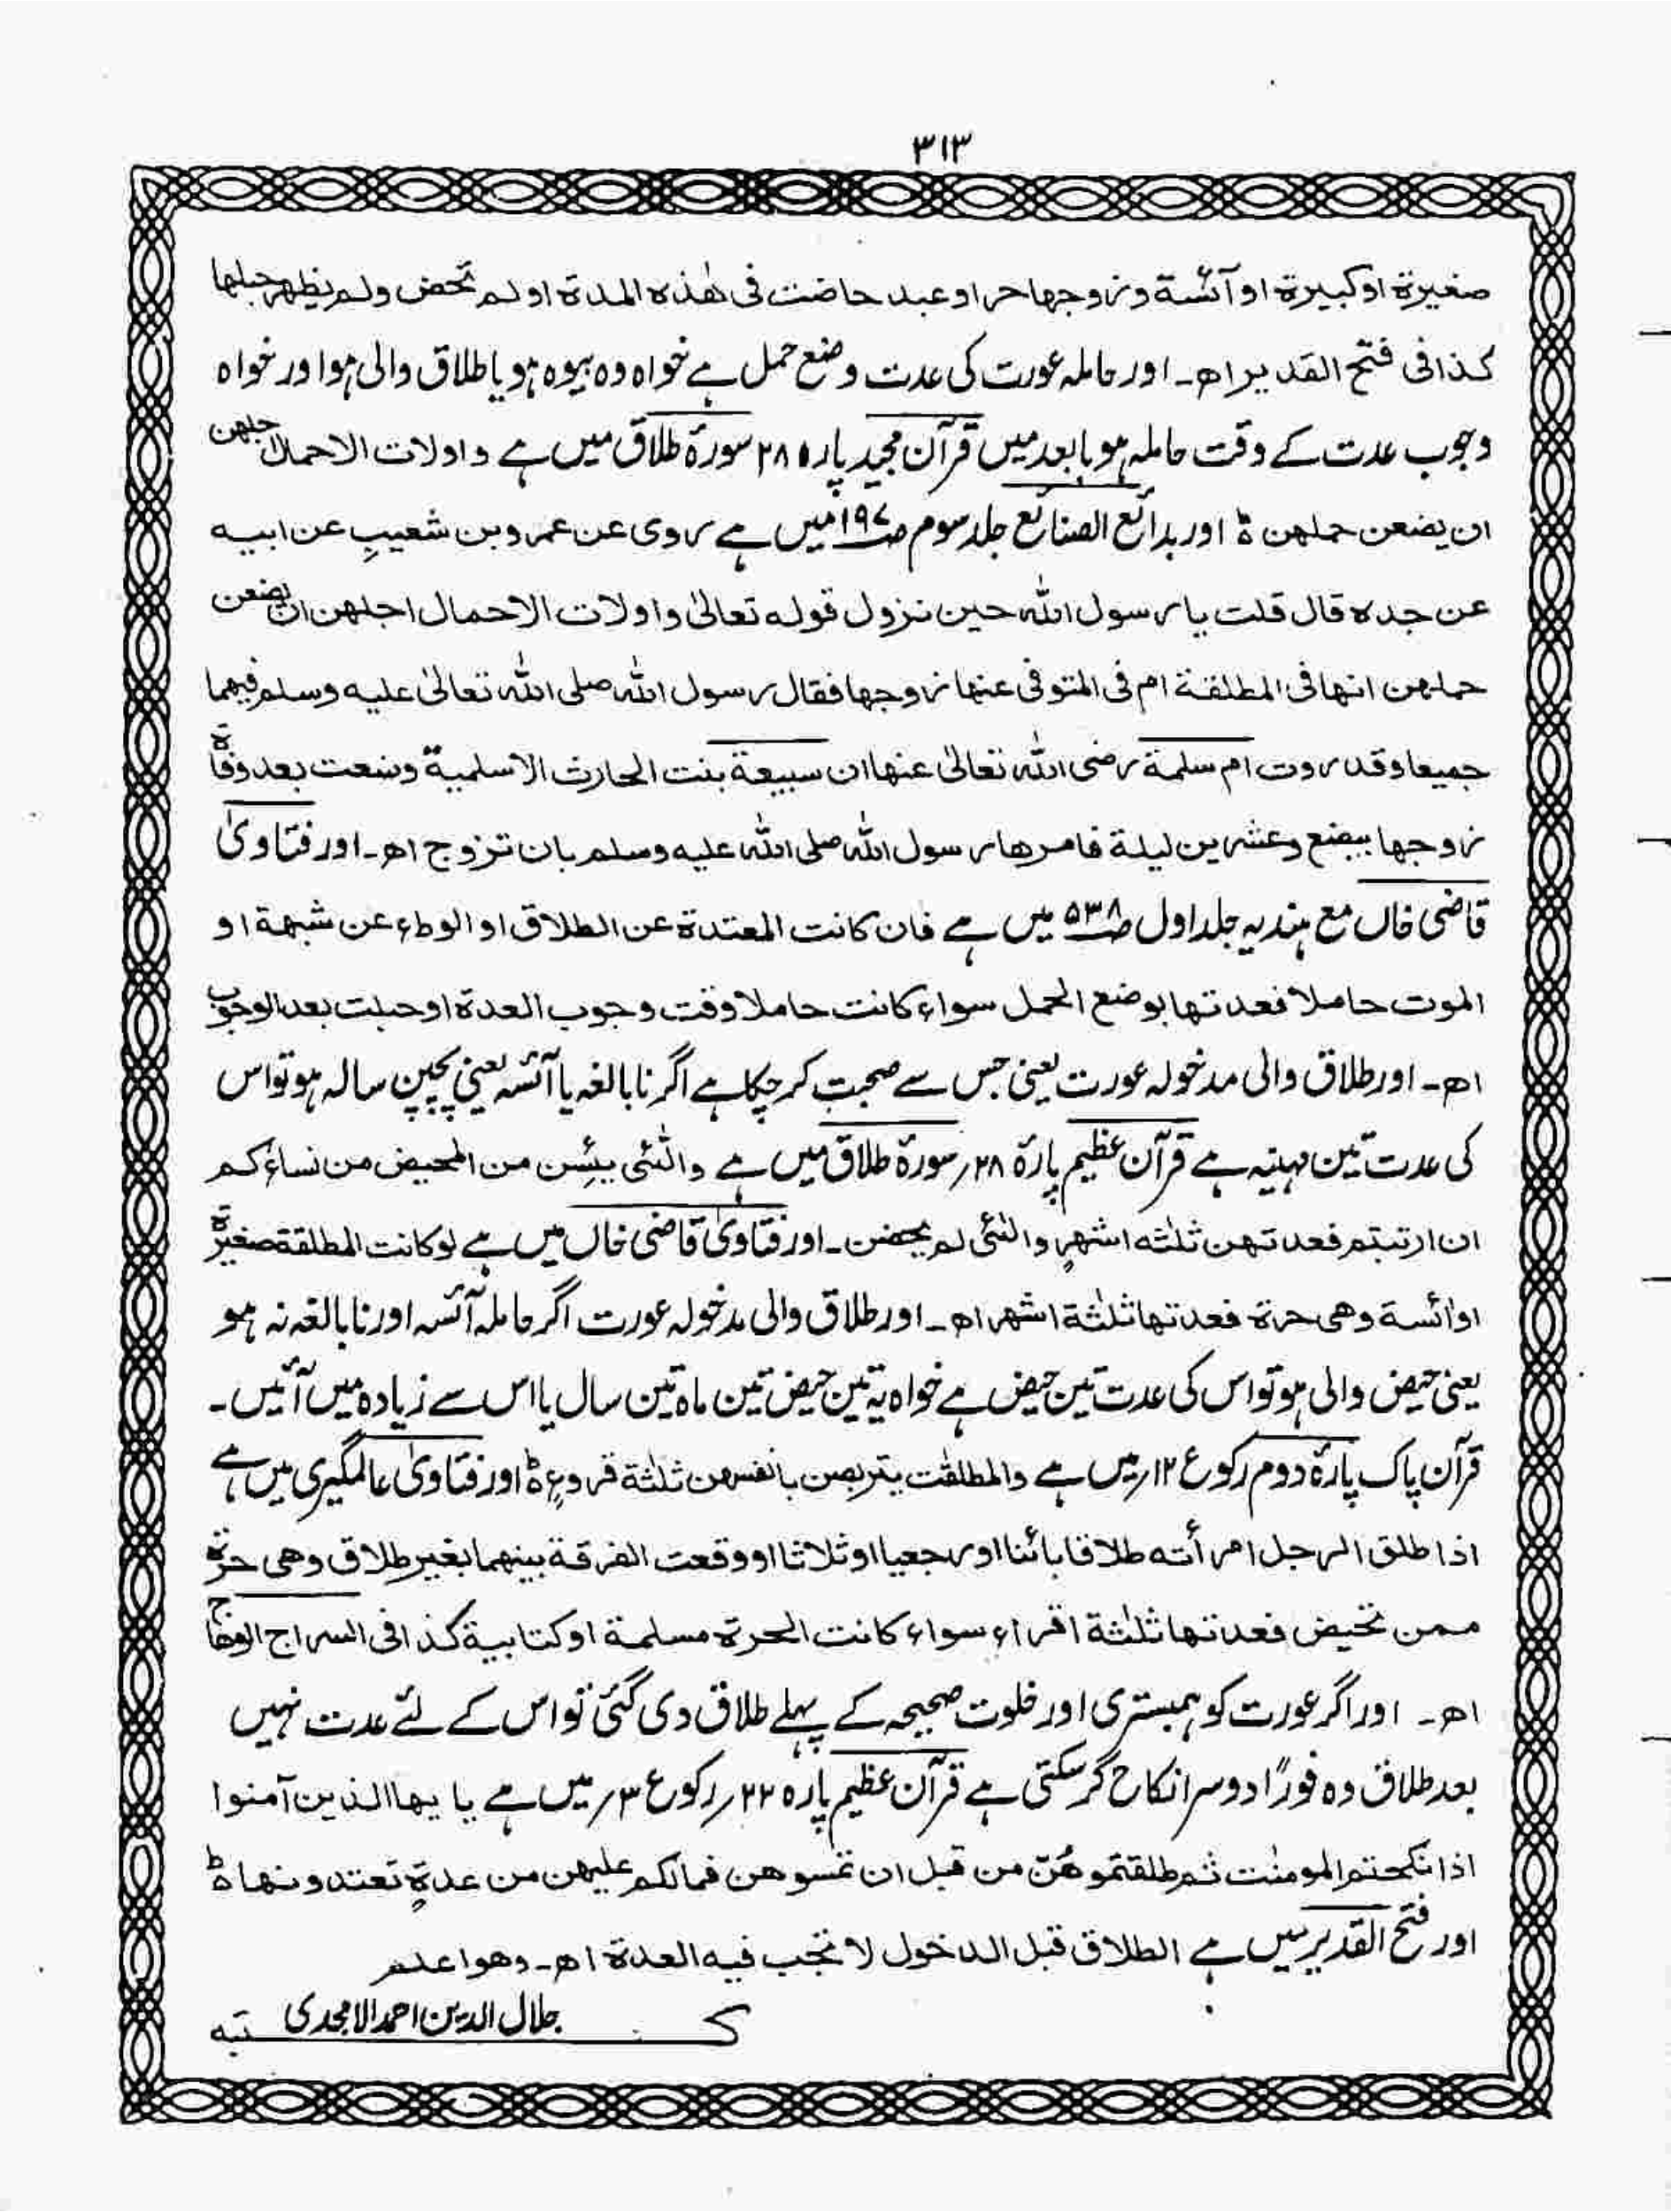 ۳۱۳
صغیرۃ اوکبیرۃ او آئسۃ وزوجھا حر اوعبد حاضت فی ھٰذہ المدۃ او لم تحض ولم یظھر حبلھا
کذا فی فتح القدیر اھ۔ اور حاملہ عورت کی عدت وضع حمل ہے خواہ وہ بیوہ ہو یا طلاق والی ہو اور خواہ
وجوب عدت کے وقت حاملہ ہو یا بعد میں قرآن مجید پارہ ۲۸ سورۂ طلاق میں ہے واولات الاحمال جلھن
ان یضعن حملھن ؕ اور بدائع الصنائع جلد سوم ص ۱۹۷ میں ہے روی عن عمرو بن شعیبٍ عن ابیہ
عن جدہ قال قلت یا رسول اللہ حین نزول قولہ تعالیٰ واولات الاحمال اجلھن ان یضعن
حملھن انھا فی المطلقۃ ام فی المتوفی عنھا زوجھا فقال رسول اللہ صلی اللہ تعالیٰ علیہ وسلم فیھما
جمیعا وقد روت ام سلمۃ رضی اللہ تعالیٰ عنھا ان سبیعۃ بنت الحارث الاسلمیۃ وضعت بعد وفاۃ
زوجھا ببضع وعشرین لیلۃ فامرھا رسول اللہ صلی اللہ علیہ وسلم بان تزوج اھ۔ اور فتاویٰ
قاضی خاں مع ہندیہ جلد اول ص ۵۳۸ میں ہے فان کانت المعتدۃ عن الطلاق او الوطء عن شبھۃ او
الموت حاملا فعدتھا بوضع الحمل سواء کانت حاملا وقت وجوب العدۃ او حبلت بعد الوجوب
اھ۔ اور طلاق والی مدخولہ عورت یعنی جس سے صحبت کرچکا ہے اگر نابالغہ یا آئسہ یعنی پچپن سالہ ہو تو اس
کی عدت تین مہینہ ہے قرآن عظیم پارۂ ۲۸؍ سورۂ طلاق میں ہے والّٰئی یئسن من المحیض من نساءکم
ان ارتبتم فعدتھن ثلٰثہ اشھرٍ والّٰئی لم یحضن۔ اور فتاویٰ قاضی خاں میں ہے لو کانت المطلقۃ صغیرۃ
او ائسۃ وھی حرۃ فعدتھا ثلٰثۃ اشھر اھ۔ اور طلاق والی مدخولہ عورت اگر حاملہ آئسہ اور نابالغہ نہ ہو
یعنی حیض والی ہو تو اس کی عدت تین حیض ہے خواہ یہ تین حیض تین ماہ تین سال یا اس سے زیادہ میں آئیں۔
قرآن پاک پارۂ دوم رکوع ۱۲؍ میں ہے والمطلقٰت یتربصن بانفسھن ثلٰثۃ قروءٍ ؕ اور فتاویٰ عالمگیری میں ہے
اذا طلق الرجل امرأتہ طلاقا بائنا او رجعیا او ثلاثا او وقعت الفرقۃ بینھما بغیر طلاق وھی حرۃ
ممن تحیض فعدتھا ثلٰثۃ اقراء سواء کانت الحرۃ مسلمۃ اوکتابیۃ کذا فی السراج الوھاج
اھ۔ اور اگر عورت کو ہمبستری اور خلوت صحیحہ کے پہلے طلاق دی گئی تو اس کے لئے عدت نہیں
بعد طلاق وہ فورًا دوسرا نکاح کرسکتی ہے قرآن عظیم پارہ ۲۲؍ رکوع ۳؍ میں ہے یایھا الذین آمنوا
اذا نکحتم المومنٰت ثم طلقتموھُنّ من قبل ان تمسوھن فمالکم علیھن من عدۃٍ تعتدونھا ؕ
اور فتح القدیر میں ہے الطلاق قبل الدخول لا تجب فیہ العدۃ اھ۔ وھو اعلم
کتبہ جلال الدین احمد الامجدی